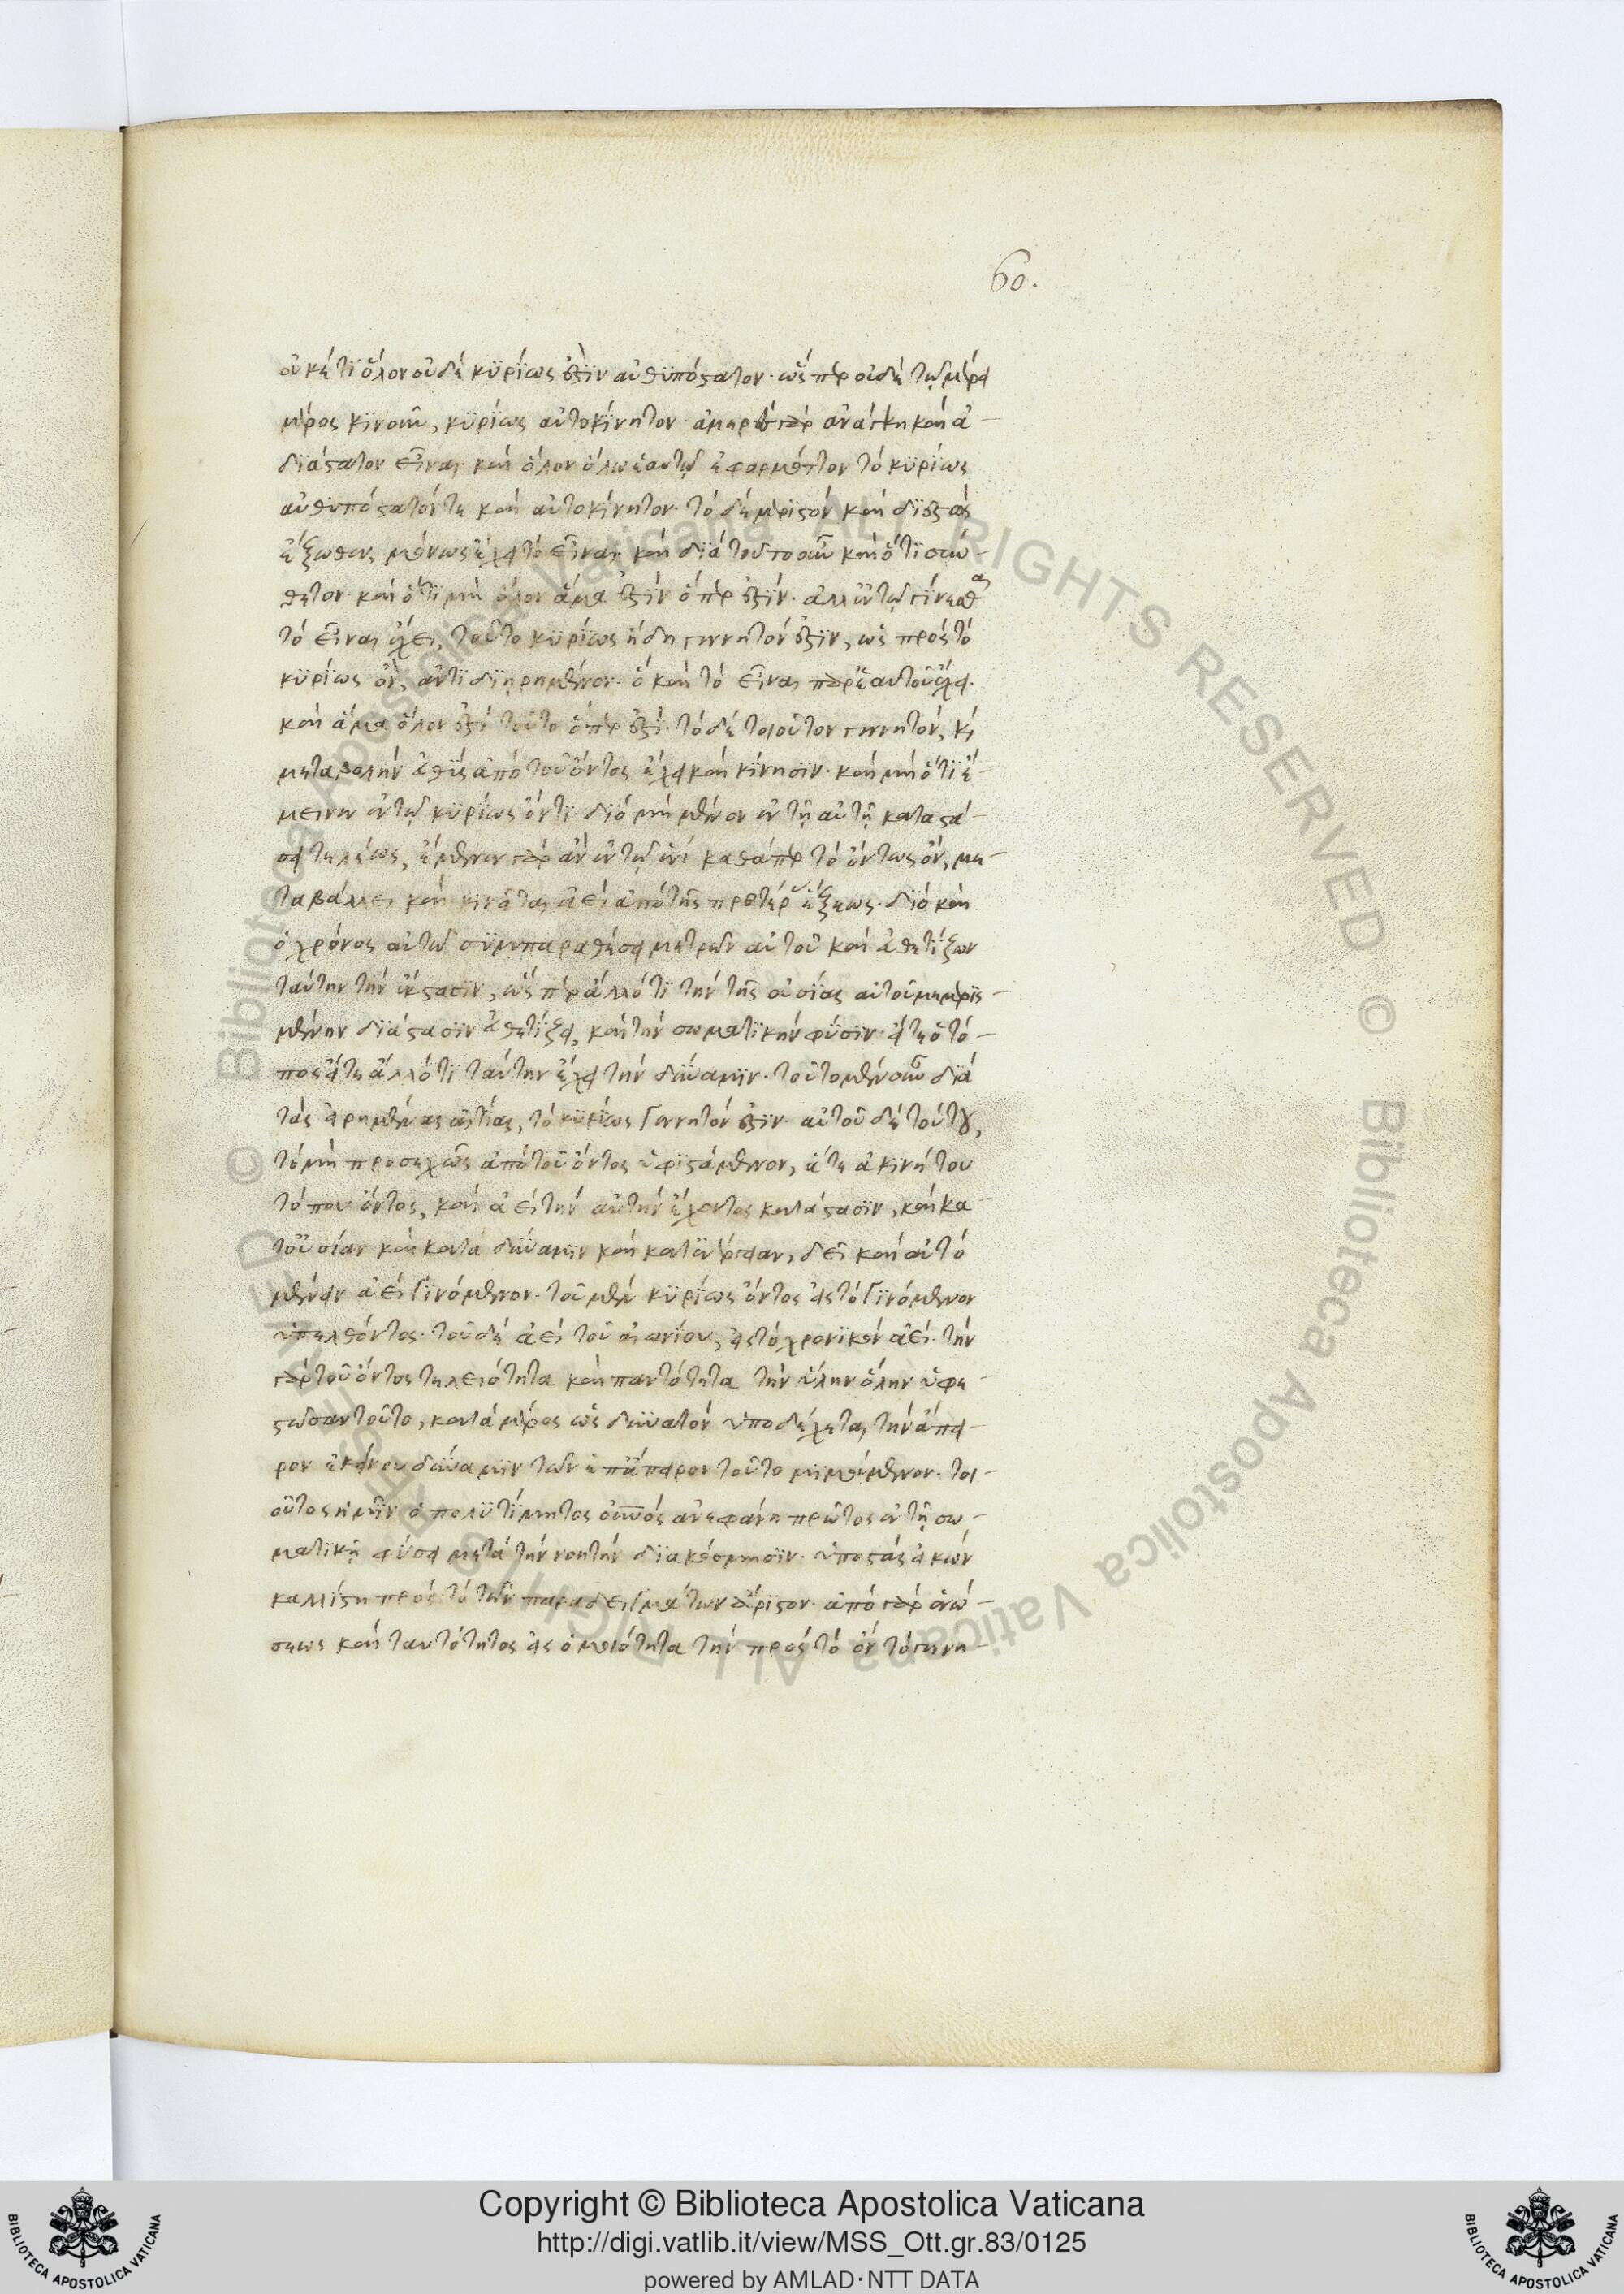 60.
οὐκέτι ὅλον οὐδὲ κυρίως ἐστὶν αὐθυπόστατον· ὥσπερ οὐδὲ τῷ μέρει
μέρος κινοῦν, κυρίως αὐτοκίνητον· ἀμερὲς γὰρ ἀνάγκη καὶ ἀ-
διάστατον εἶναι καὶ ὅλον ὅλω ἑαυτῷ ἐφαρμόττον τὸ κυρίως
αὐθυπόστατόν τε καὶ αὐτοκίνητον· τὸ δὲ μεριστὸν καὶ διαστὰν
ἔξωθεν μόνως ἔχει τὸ εἶναι καὶ διὰ τοῦτο οὖν καὶ ὅτι σύν-
θετον καὶ ὅτι μὴ ὅλον ἅμα ἐστὶν ὅπερ ἐστίν· ἀλλ' ἐν τῷ γίνεσθαι
τὸ εἶναι ἔχει, τοῦτο κυρίως ἤδη γεννητόν ἐστιν, ὡς πρὸς τὸ
κυρίως ὂν, ἀντιδιῃρημένον· ὃ καὶ τὸ εἶναι παρ' ἑαυτοῦ ἔχει·
καὶ ἅμα ὅλον ἐστὶ τοῦτο ὅπερ ἐστί· τὸ δὲ τοιοῦτον γεννητὸν, καὶ
μεταβολὴν εὐθὺς ἀπὸ τοῦ ὄντος ἔχει καὶ κίνησιν· καὶ μὴ ὅτι ἔ-
μεινεν ἐν τῷ κυρίως ὄντι· διὸ μὴ μένον ἐν τῇ αὐτῇ καταστά-
σει τελέως, ἔμενεν γὰρ ἂν ἐν τῷ ἑνὶ καθάπερ τὸ ὄντως ὂν, με-
ταβάλλει καὶ κινεῖται ἀεὶ ἀπὸ τῆς προτέρου ἕξεως· διὸ καὶ
ὁ χρόνος αὐτῷ συμπαραθέσει μετρῶν αὐτοῦ καὶ εὐθετίζων
ταύτην τὴν ἔκστασιν, ὥσπερ ἄλλό τι τὴν τῆς οὐσίας αὐτοῦ μεμερισ-
μένην διάστασιν εὐθετίζει, καὶ τὴν σωματικὴν φύσιν· εἴτε ὁ τό-
πος εἴτε ἄλλό τι ταύτην ἔχει τὴν δύναμιν· τοῦτο μὲν οὖν διὰ
τὰς εἰρημένας αἰτίας, τὸ κυρίως γεννητόν ἐστιν· αὐτοῦ δὲ τούτου,
τὸ μὴ προσεχῶς ἀπὸ τοῦ ὄντος ὑφιστάμενον, ἅτε ἀκινήτου
τόπου ὄντος, καὶ ἀεὶ τὴν αὐτὴν ἔχοντος κατάστασιν, καὶ κα-
τ' οὐσίαν καὶ κατὰ δύναμιν καὶ κατ' ἐνέργειαν, δεῖ καὶ αὐτὸ
μένειν ἀεὶ γινόμενον· τοῦ μὲν κυρίως ὄντος εἰς τὸ γινόμενον
ὑπελθόντος· τοῦ δὲ ἀεὶ τοῦ αἰωνίου, εἰς τὸ χρονικὸν ἀεί· τὴν
γὰρ τοῦ ὄντος τελειότητα καὶ παντότητα τὴν ὕλην ὅλην ὑφε-
στῶσαν τοῦτο, κατὰ μέρος ὡς δυνατὸν ὑποδέχεται τὴν ἄπει-
ρον ἐκείνου δύναμιν τῶν ἐπ' ἄπειρον τοῦτο μιμούμενον· τοι-
οῦτος ἡμῖν ὁ πολυτίμητος οὐνὸς ἀνεφάνη πρῶτος ἐν τῇ σω-
ματικῇ φύσει μετὰ τὴν νοητὴν διακόσμησιν· ὑποστὰς εἰκὼν
καλλίστη πρὸς τὸ τῶν παραδειγμάτων ἄριστον· ἀπὸ γὰρ ἑνώ-
σεως καὶ ταυτότητος εἰς ὁμοιότητα τὴν πρὸς τὸ ὂν τὸ γενη-
Copyright © Biblioteca Apostolica Vaticana
http://digi.vatlib.it/view/MSS_Ott.gr.83/0125
powered by AMLAD·NTT DATA